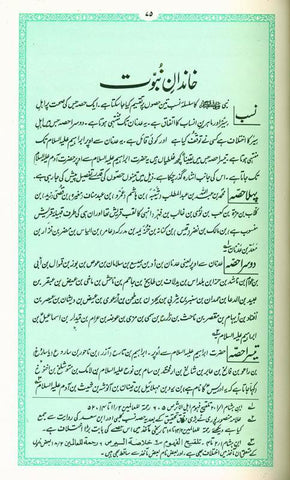 ۷۵
خاندانِ نبوت
نسب
نبی ﷺ کا سلسلۂ نسب تین حصوں پر تقسیم کیا جا سکتا ہے۔ ایک حصہ جس کی صحت پر اہل
سیر اور ماہرینِ انساب کا اتفاق ہے۔ یہ عدنان تک منتہی ہوتا ہے۔ دوسرا حصہ جس میں اہل
سیر کا اختلاف ہے کسی نے توقف کیا ہے اور کوئی قائل ہے۔ یہ عدنان سے اوپر ابراہیم علیہ السلام تک
منتہی ہوتا ہے۔ تیسرا حصہ جس میں یقیناً کچھ غلطیاں ہیں یہ حضرت ابراہیم علیہ السلام سے اوپر حضرت آدم علیہ السلام
تک جاتا ہے۔ اس کی جانب اشارہ گزر چکا ہے۔ ذیل میں تینوں حصوں کی قدرے تفصیل پیش کی جا رہی ہے۔
پہلا حصہ
محمد بن عبداللہ بن عبدالمطلب (شیبہ) بن ہاشم (عمرو) بن عبد مناف (مغیرہ) بن قصی (زید) بن
کلاب بن مرہ بن کعب بن لوی بن غالب بن فہر (انہی کا لقب قریش تھا اور ان ہی کی طرف قبیلۂ قریش
منسوب ہے) بن مالک بن نضر (قیس) بن کنانہ بن خزیمہ بن مدرکہ (عامر) بن الیاس بن مضر بن نزار بن
معد بن عدنان
دوسرا حصہ
عدنان سے اوپر یعنی عدنان بن أد بن ہمیسع بن سلامان بن عوص بن بوز بن قموال بن أبی
بن عوام بن ناشد بن حزا بن بلداس بن یدلاف بن طابخ بن جاحم بن ناحش بن ماخی بن عیض بن عبقر بن
عبید بن الدعا بن حمدان بن سنبر بن یثربی بن یحزن بن یلحن بن أرعوی بن عیض بن دیشان بن عیصر بن
أفناد بن أیہام بن مقصر بن ناحث بن زارح بن سمی بن مزی بن عوضہ بن عرام بن قیدار بن اسماعیل بن
ابراہیم علیہ السلام
تیسرا حصہ
حضرت ابراہیم علیہ السلام سے اوپر۔ ابراہیم بن تارح (آزر) بن ناحور بن ساروع (یا ساروغ)
بن راعو بن فالخ بن عابر بن شالخ بن ارفخشد بن سام بن نوح علیہ السلام بن لامک بن متوشلخ بن اخنوخ
(کہا جاتا ہے کہ یہ ادریس کا نام ہے) بن یرد بن مہلائیل بن قینان بن آنوشہ بن شیث بن آدم علیہ السلام
ابن ہشام ۱/۱، ۲ تلقیح فہوم اہل الاثر ص ۵، ۶ رحمۃ للعالمین ۲/۱۱ تا ۱۴، ۵۲